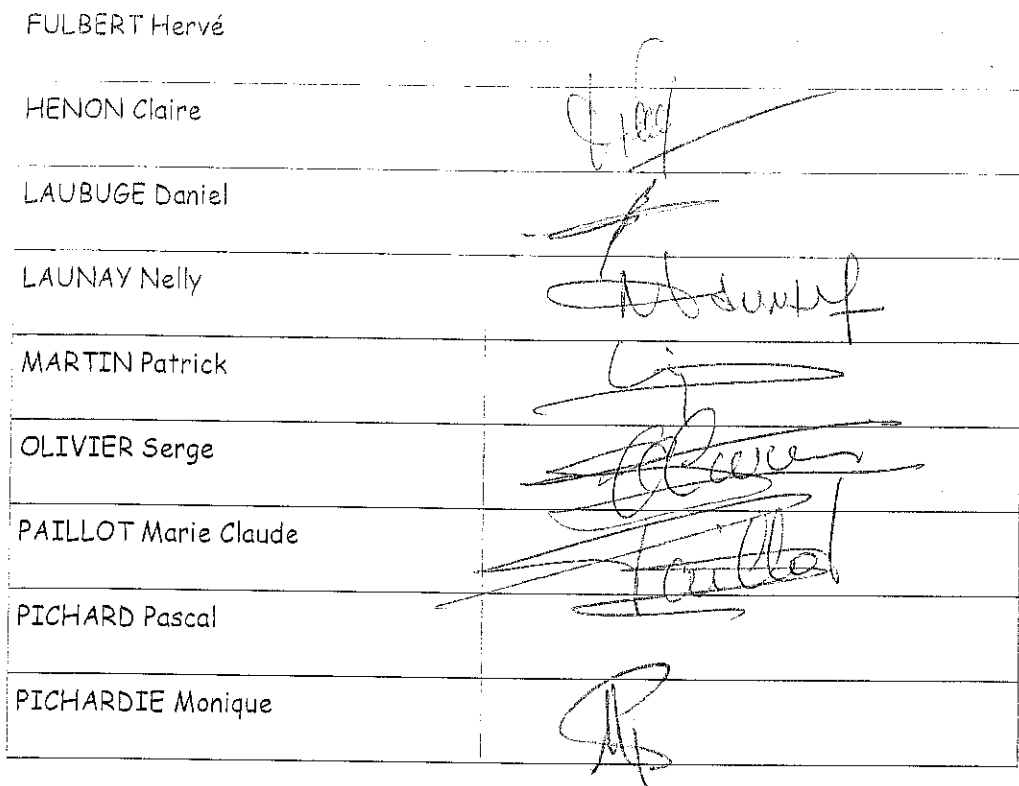 FULBERT Hervé
HENON Claire
LAUBUGE Daniel
LAUNAY Nelly
MARTIN Patrick
OLIVIER Serge
PAILLOT Marie Claude
Paillot
PICHARD Pascal
PICHARDIE Monique